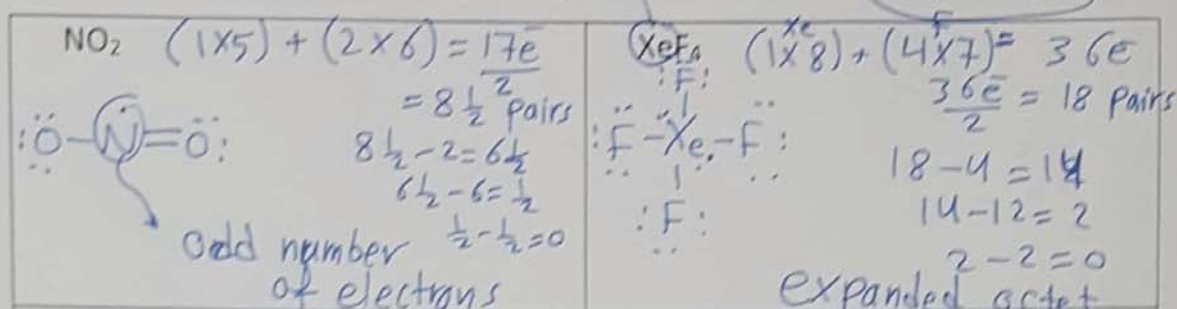 NO₂ (1x5) + (2x6) = 17ē
2
= 8 ½ pairs
:Ö-N=Ö:
8½ - 2 = 6½
6½ - 6 = ½
½ - ½ = 0
odd number
of electrons
XeF₄ (1x8) + (4x7) = 36ē
Xe F
:F:
36ē/2 = 18 pairs
:F-Xe-F:
18 - 4 = 14
:F:
14 - 12 = 2
2 - 2 = 0
expanded octet